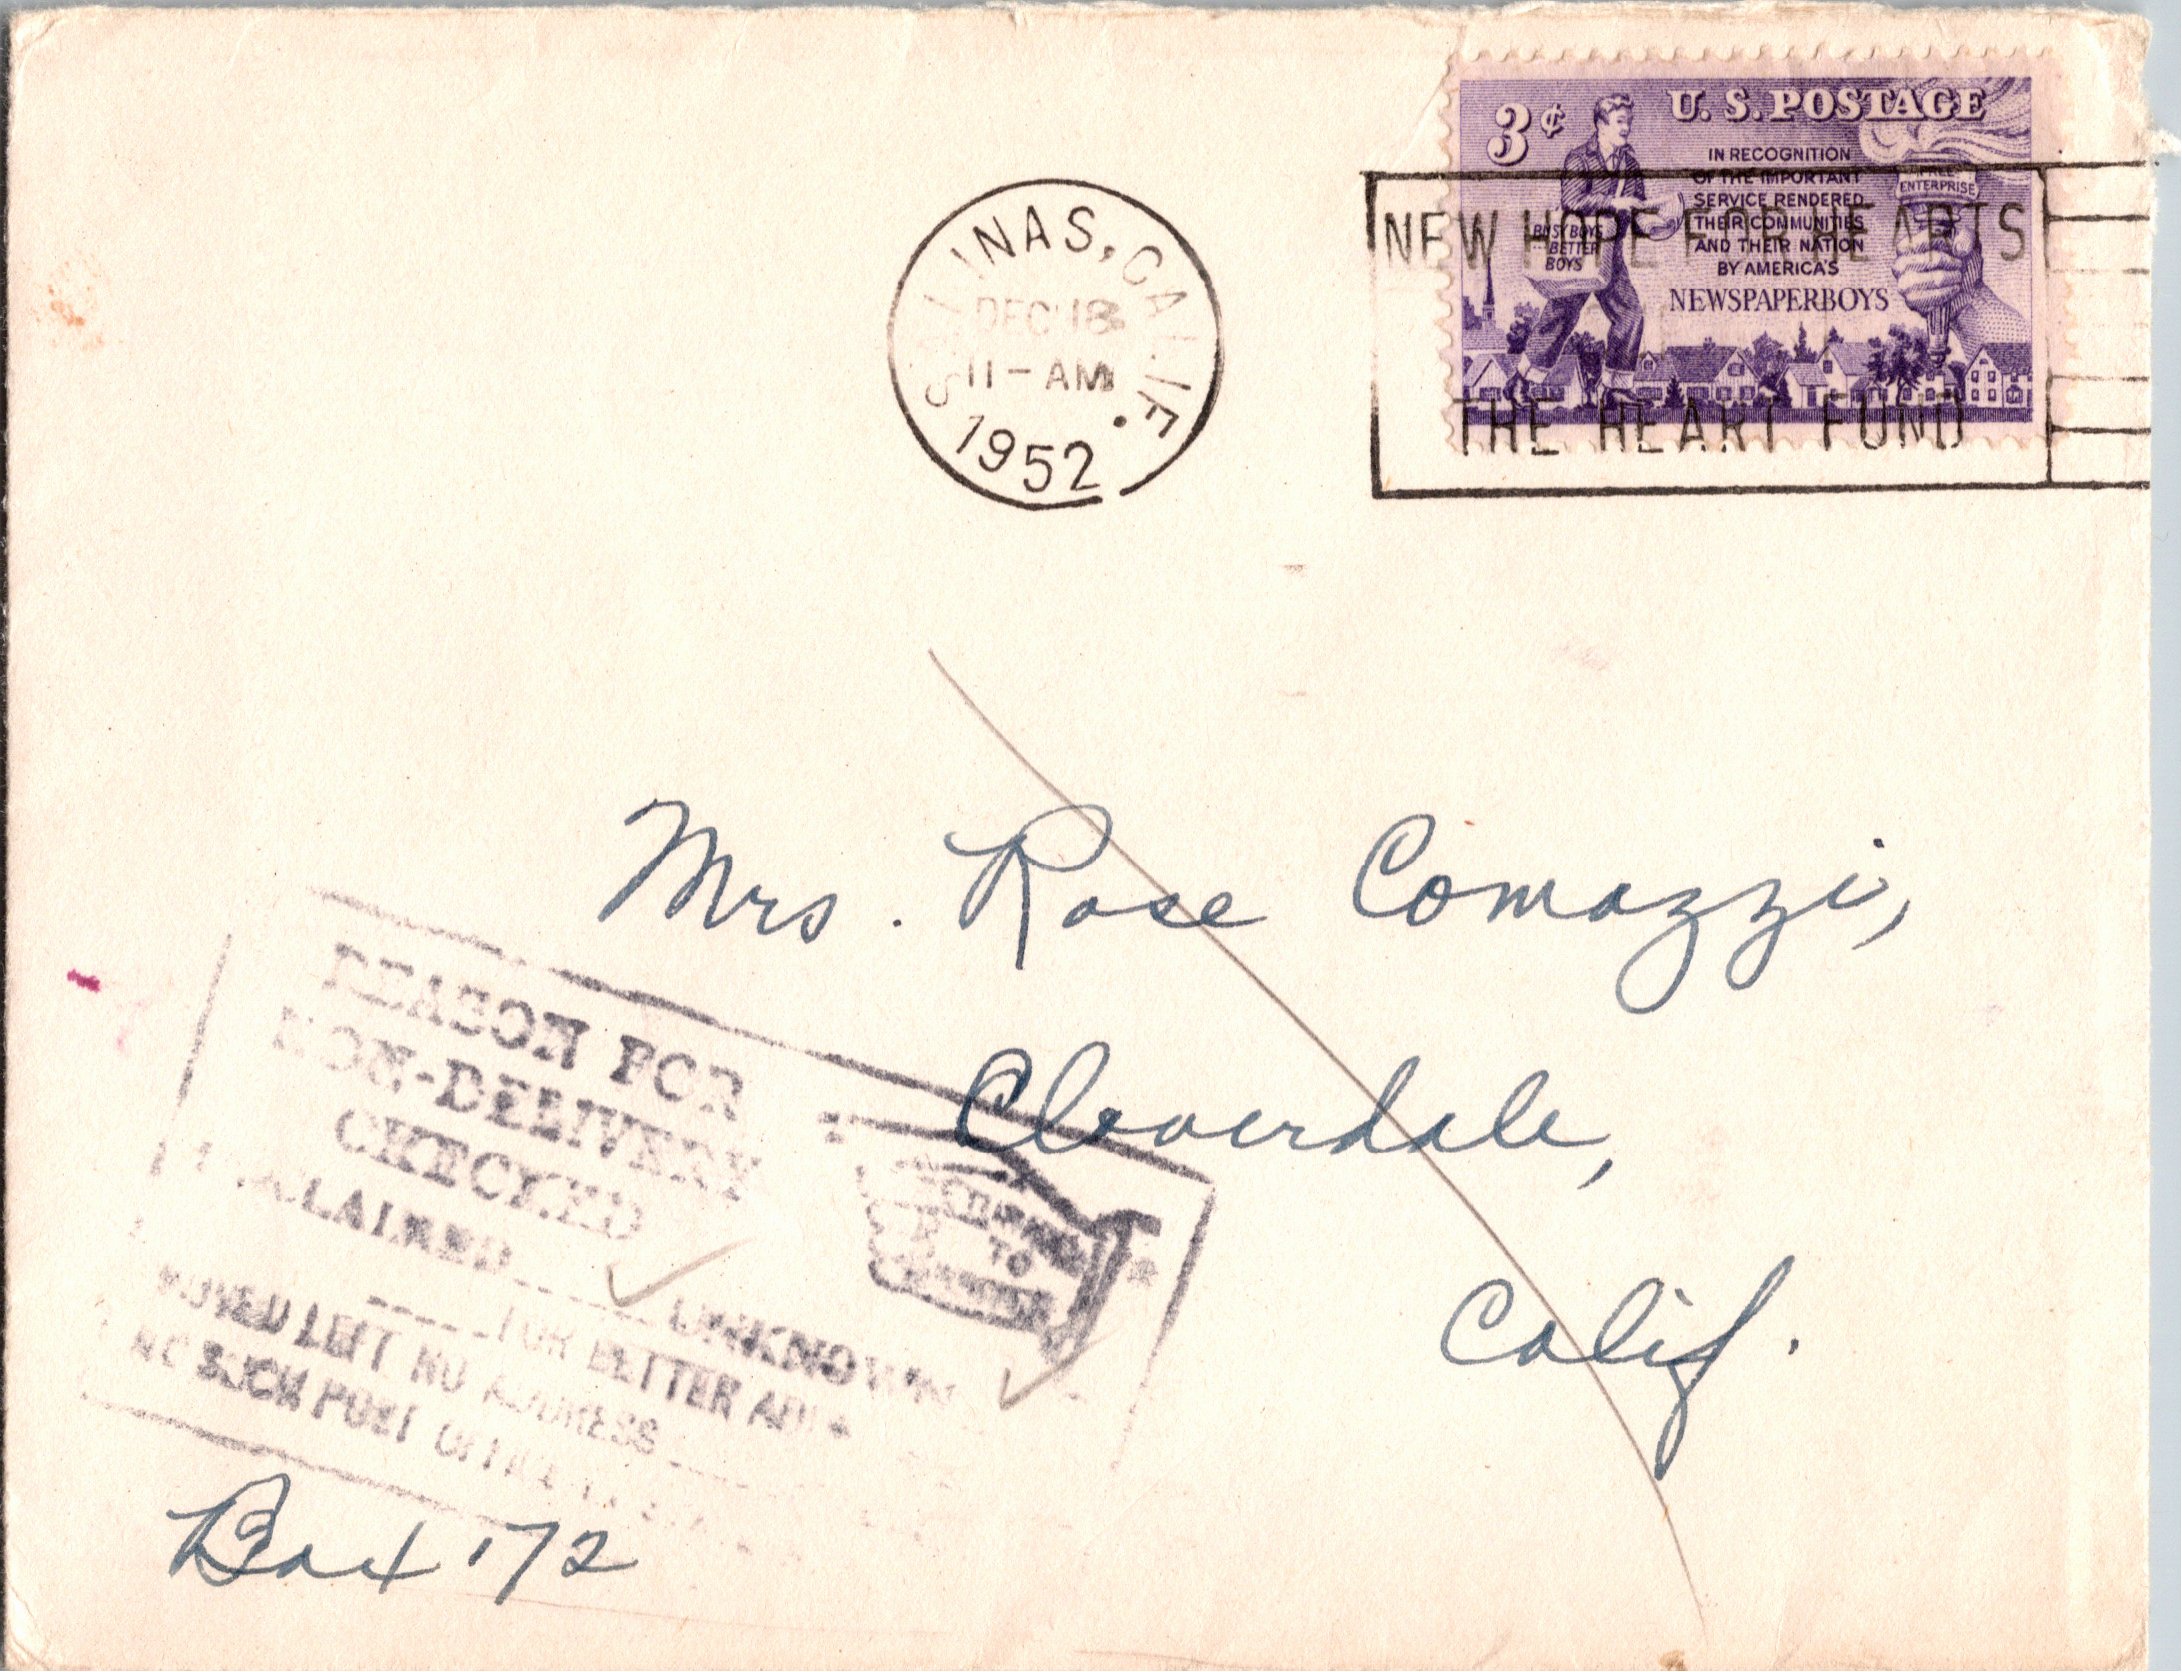 SALINAS, CALIF.
DEC 18
11-AM
1952
3¢
U. S. POSTAGE
IN RECOGNITION
OF THE IMPORTANT
SERVICE RENDERED
THEIR COMMUNITIES
AND THEIR NATION
BY AMERICA'S
NEWSPAPERBOYS
FREE
ENTERPRISE
BUSY BOYS
...BETTER
BOYS
NEW HOPE FOR HEARTS
THE HEART FUND
Mrs. Rose Comazzi,
Cloverdale,
Calif.
REASON FOR
NON-DELIVERY
CHECKED
UNCLAIMED
UNKNOWN
FOR BETTER
MOVED LEFT NO ADDRESS
NO SUCH POST OFFICE
TO
Box 172